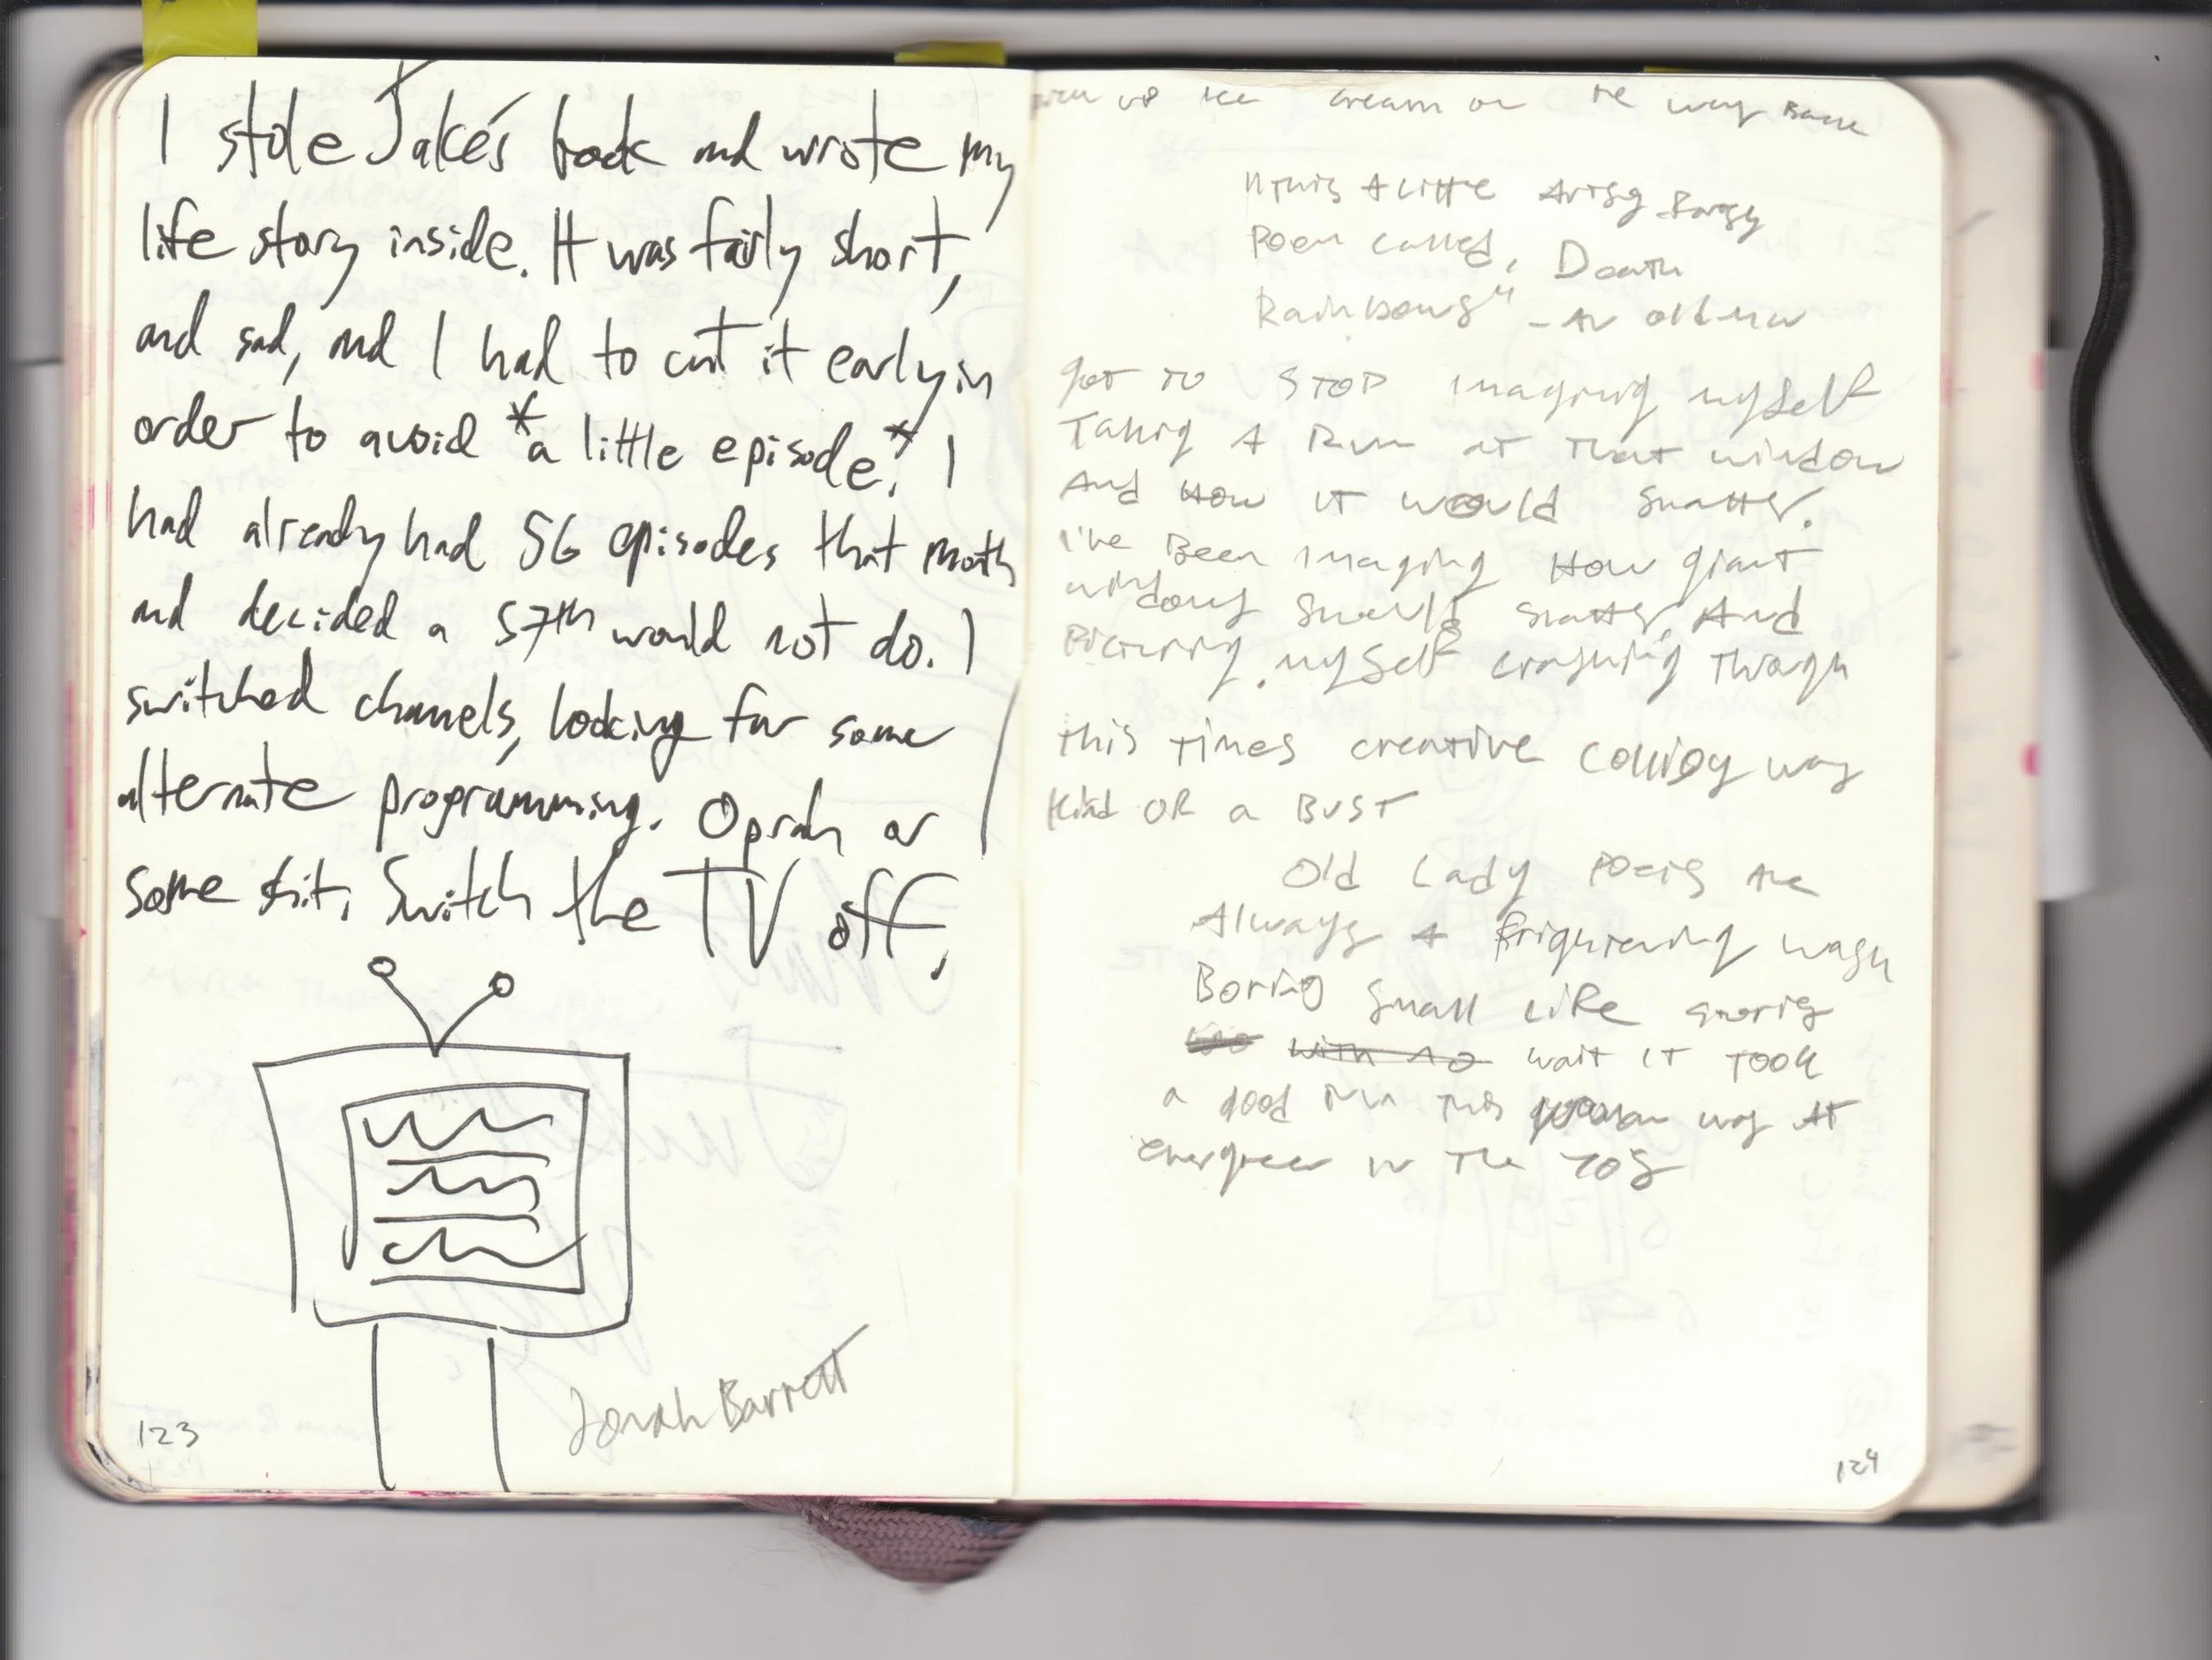 I stole Jake's book and wrote my
life story inside. It was fairly short,
and sad, and I had to cut it early in
order to avoid *a little episode.* I
had already had 56 episodes that month
and decided a 57th would not do. I
switched channels, looking for some
alternate programming. Oprah or
some shit. Switch the TV off.
Jonah Barrett
123
ice cream on the way Back
"this A little Artsy
Poem called, Death
Rainbows" -
got to STOP imaging myself
Taking A Run at That window
And How it would shatter.
I've Been imaging How giant
windows shatter, And
Picturing myself crashing through
this times creative way
OR a BUST
Old Lady are
Always A
Boring small LiKe
with wait it TOOK
a good this way At
evergreen in The 70s
124